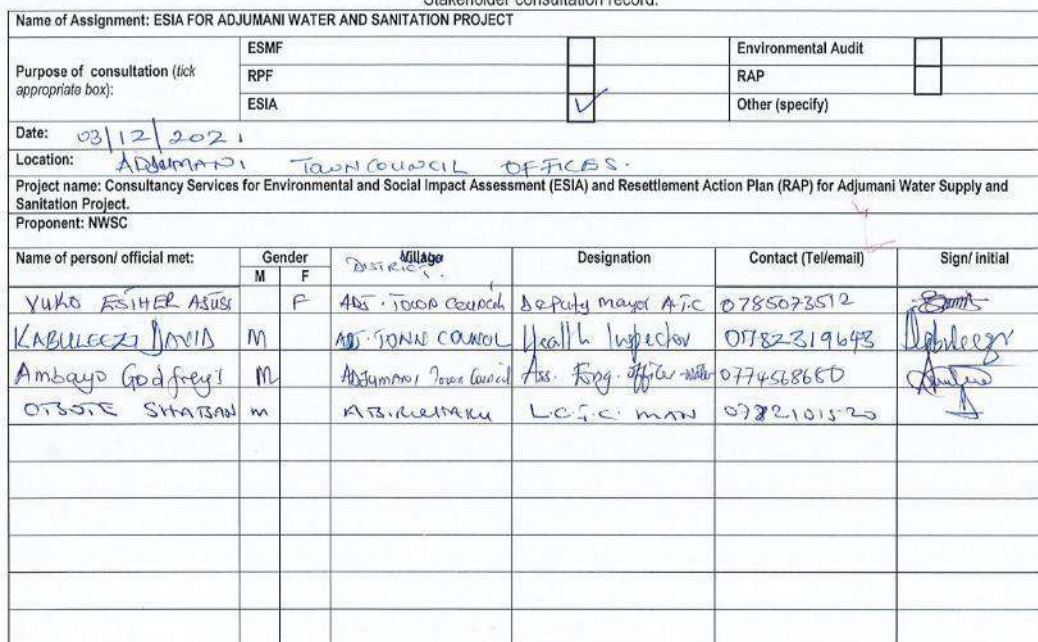 Stakeholder consultation record.
Name of Assignment: ESIA FOR ADJUMANI WATER AND SANITATION PROJECT
Purpose of consultation (tick appropriate box):
ESMF
Environmental Audit
RPF
RAP
ESIA ✓
Other (specify)
Date: 03/12/2021
Location: ADJUMANI TOWN COUNCIL OFFICES.
Project name: Consultancy Services for Environmental and Social Impact Assessment (ESIA) and Resettlement Action Plan (RAP) for Adjumani Water Supply and
Sanitation Project.
Proponent: NWSC
Name of person/ official met: Gender Village Designation Contact (Tel/email) Sign/ initial
M F DISTRICT.
YUKO ESTHER F ADJ. TOWN COUNCIL Deputy mayor A.T.C 0785073512
KABULEEZI DAVID M ADJ. TOWN COUNCIL Health Inspector 0782319643
Ambayo Godfrey M ADJUMANI Town Council Ass. Eng. officer -water 0774568650
SHABAN m L.C.I.C. MAN 0782101520